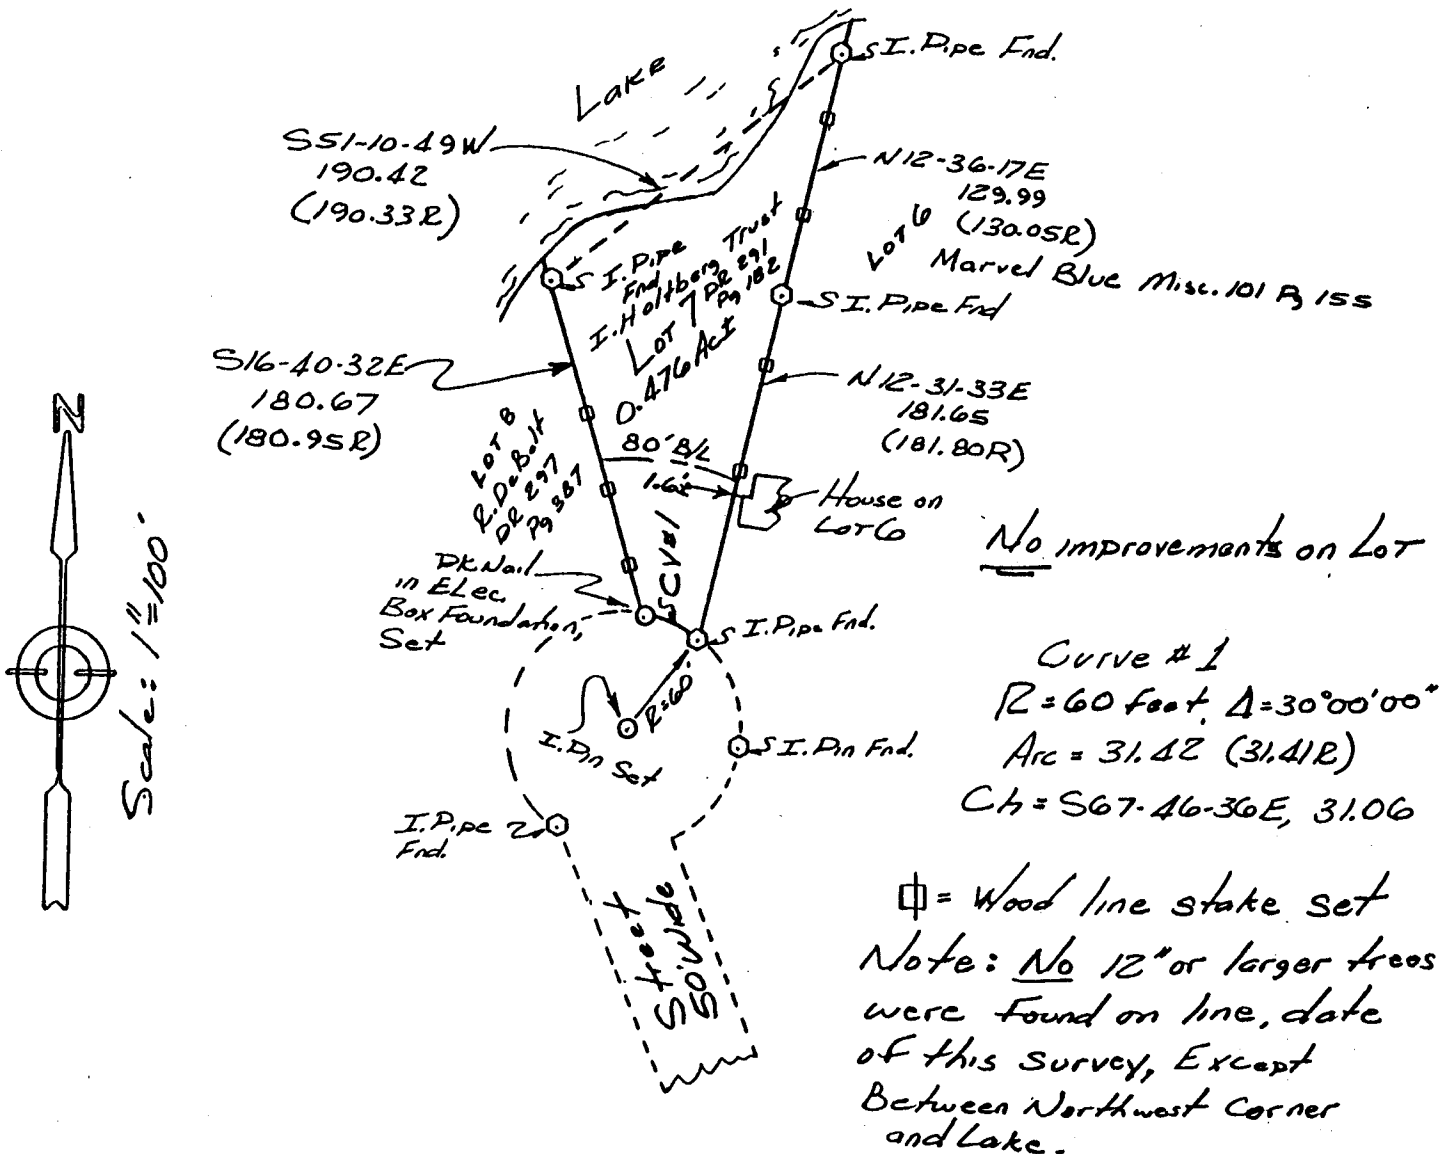 Lake
S I. Pipe Fnd.
S51-10-49W
190.42
(190.33R)
N12-36-17E
129.99
(130.05R)
LOT 6
Marvel Blue Misc. 101 Pg 155
S I. Pipe Fnd
I. Pipe
Fnd
I. Holtberg Trust
LOT 7 DR 291
Pg 182
0.476 Ac±
S16-40-32E
180.67
(180.95R)
N12-31-33E
181.65
(181.80R)
N
Scale: 1"=100'
LOT 8
R. DeBolt
DR 297
Pg 387
80' B/L
1.6'±
House on
LOT 6
No improvements on LOT
CV#1
PK Nail
in ELec.
Box Foundation,
Set
S I. Pipe Fnd.
R=60'
I. Pin Set
S I. Pin Fnd.
I. Pipe
Fnd.
Street
50' Wide
Curve #1
R=60 feet, Δ=30°00'00"
Arc = 31.42 (31.41R)
Ch = S67-46-36E, 31.06
= Wood line stake set
Note: No 12" or larger trees
were found on line, date
of this survey, Except
Between Northwest Corner
and Lake.